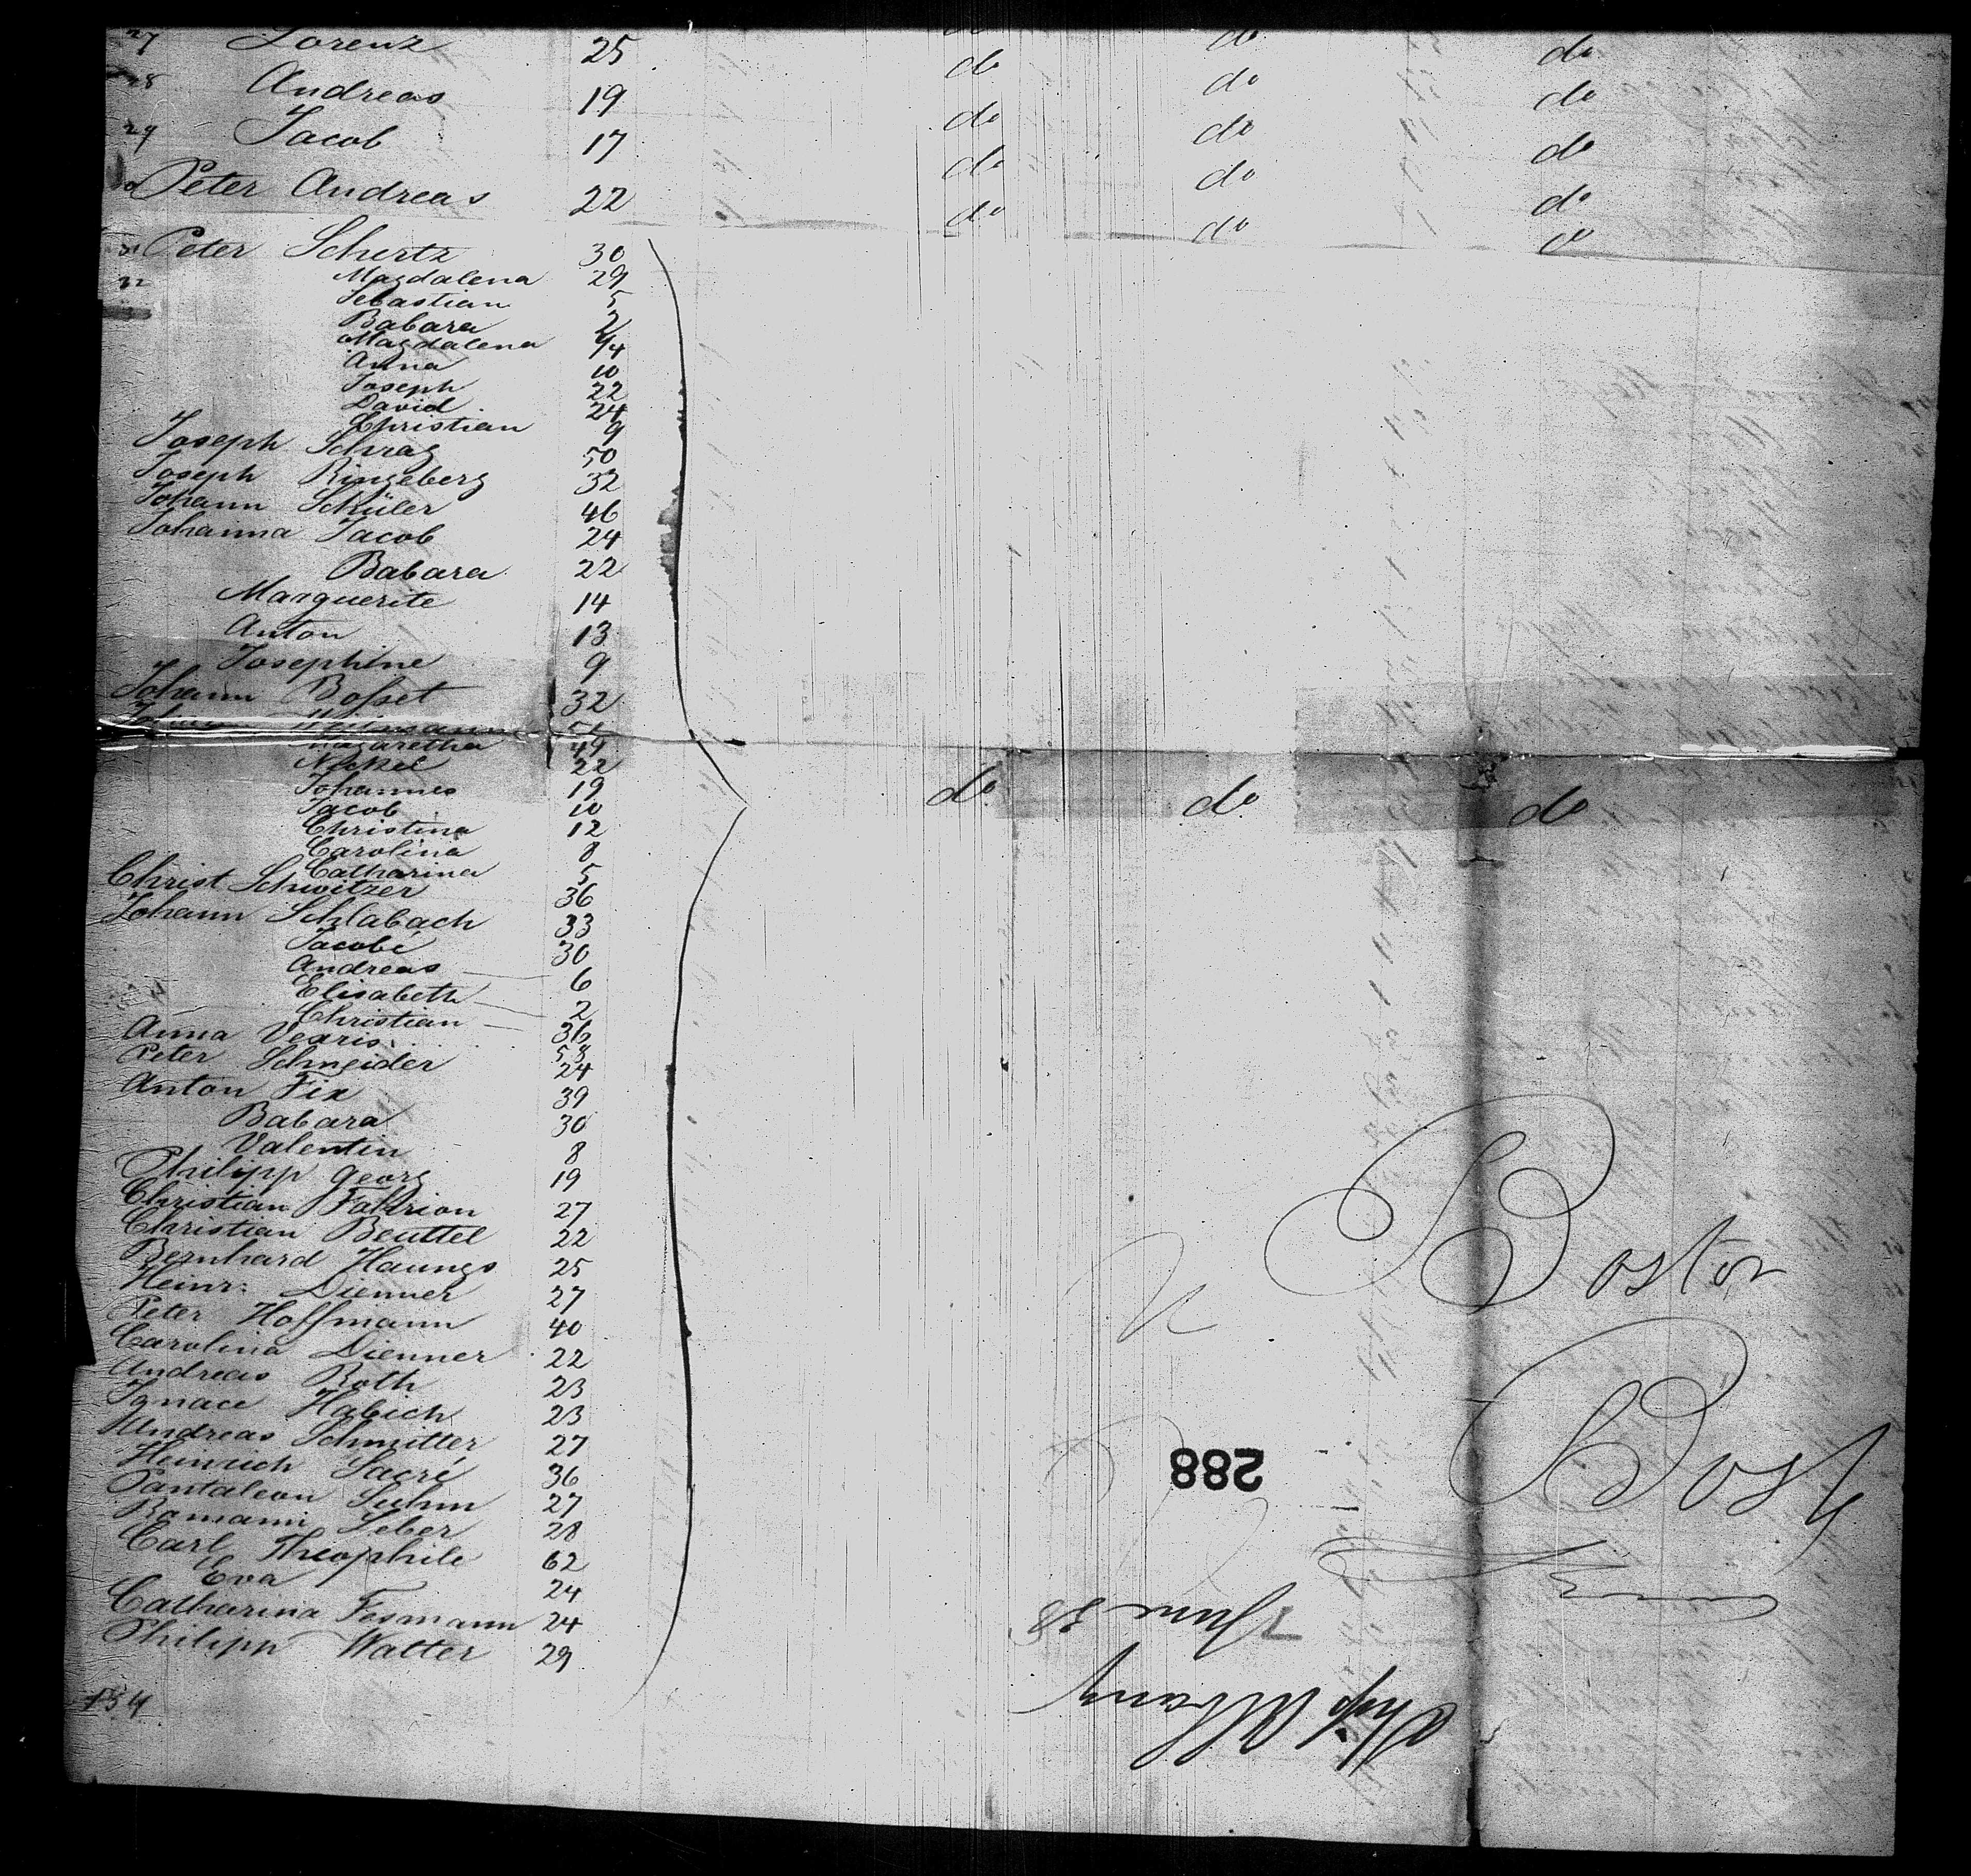 27 Lorenz 25 do do do
28 Andreas 19 do do do
29 Jacob 17 do do do
Peter Andreas 22 do do do
31 Peter Schertz 30
32 Magdalena 29
Sebastian 5
Babara 2
Magdalena 1/4
Anna 10
Joseph 22
David 24
Christian 9
Joseph Schrag 50
Joseph Ringeberg 32
Johann Schüler 46
Johanna Jacob 24
Babara 22
Marguerite 14
Anton 13
Josephine 9
Johann Bosset 32
Magaretha 49
Nickel 22
Johannes 19 do do do
Jacob 10
Christina 12
Carolina 8
Catharina 5
Christ Schwitzer 36
Johann Schlabach 33
Jacobé 30
Andreas 6
Elisabeth 2
Christian 36
Anna Vearis 53
Peter Schneider 24
Anton Fix 39
Babara 30
Valentin 8
Philipp Georg 19
Christian Fahrion 27
Christian Beuttel 22
Bernhard Haungs 25
Heinr: Dienner 27
Peter Hoffmann 40
Carolina Dienner 22
Andreas Roth 23
Ignace Habich 23
Andreas Schmitter 27
Heinrich Sacré 36
Pantaleon Suhm 27
Romann Seber 28
Carl Theophile 62
Eva 24
Catharina Fesmann 24
Philipp Walter 29
154
Boston
Bost
288
7 June 38
Ship Albany